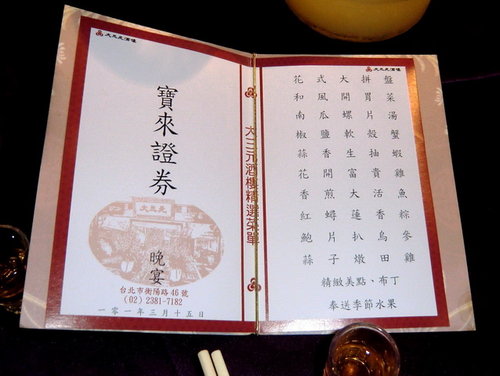 大三元酒樓
寶來證券
大三元
晚宴
台北市衡陽路46號
(02) 2381-7182
一零一年三月十五日
大三元酒樓精選菜單
大三元酒樓
花式大拼盤
和風開胃菜
南瓜螺片湯
椒鹽軟殼蟹
蒜香生抽蝦
花開富貴雞
香煎大活魚
紅蟳蓮香粽
鮑片扒烏參
蒜子燉田雞
精緻美點、布丁
奉送季節水果